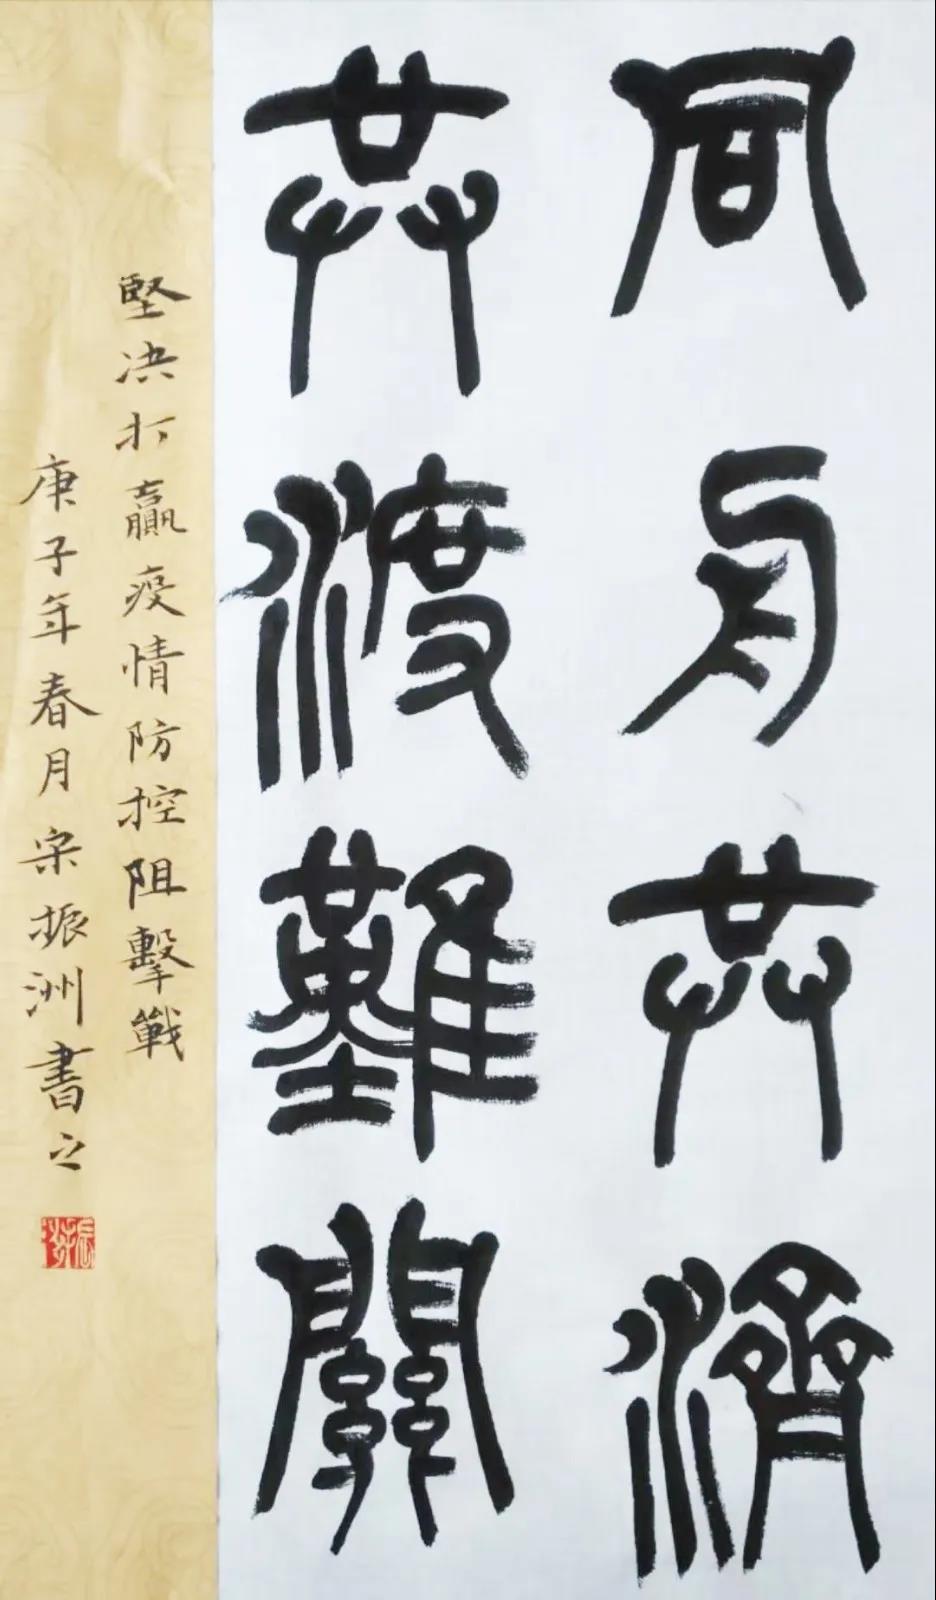 同舟共濟
共渡難關
堅决打贏疫情防控阻擊戰
庚子年春月宋振洲書之